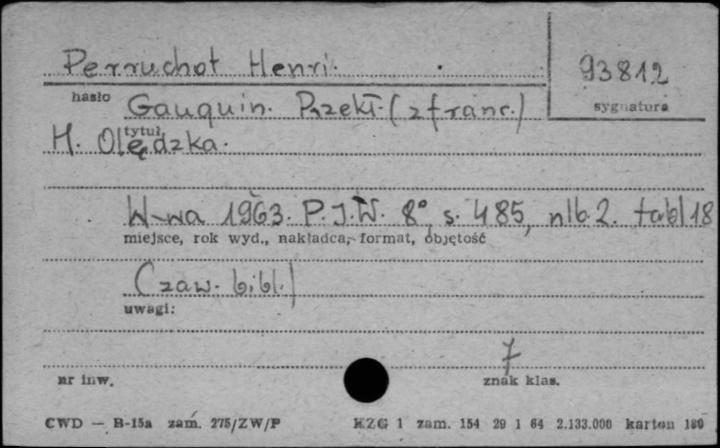 Perruchot Henri.
93812
hasło
sygnatura
Gauquin. Przekł. (z franc.)
tytuł
H. Olędzka.
W-wa 1963. P.I.W. 8°, s. 485, nlb. 2. tabl 18
miejsce, rok wyd., nakładca, format, objętość
(zaw. bibl.)
uwagi:
7
nr inw.
znak klas.
CWD — B-15a zam. 275/ZW/P
KZG 1 zam. 154 29 1 64 2.133.000 karton 180